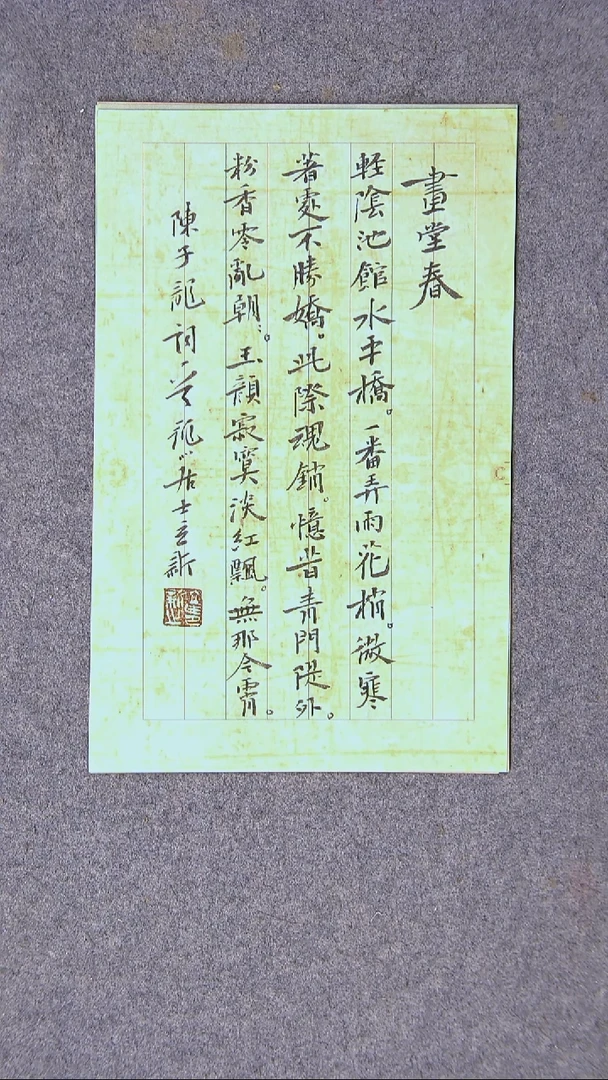 畫堂春
輕陰池館水平橋。一番弄雨花梢。微寒
著處不勝嬌。此際魂銷。憶昔青門隄外。
粉香零亂朝〻。玉顏寂寞淡紅飄。無那今宵。
陳子龍詞一首 居士立新